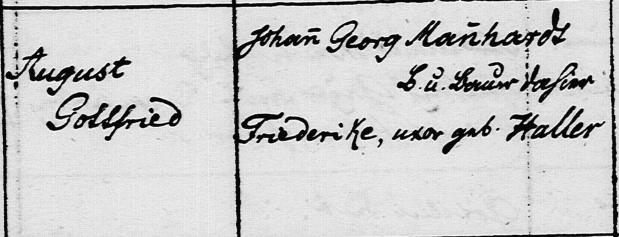 August
Gottfried
Johan̄ Georg Man̄hardt
B. u. Bauer dahier
Friederike, uxor geb. Haller